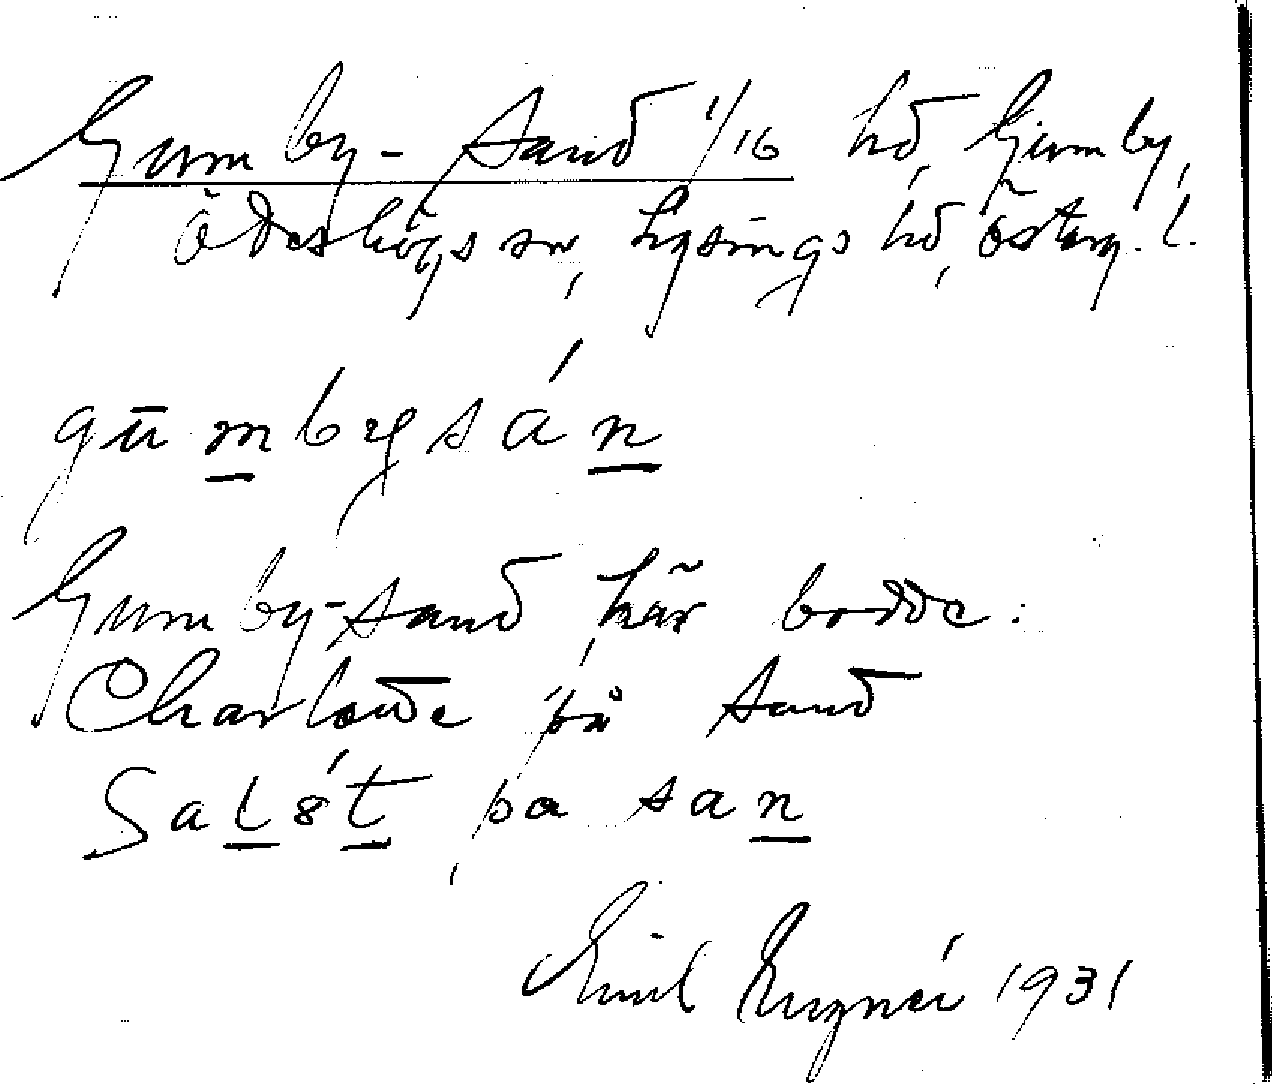 Gumby-Sand 1/16 hd, Gumby,
Ödeshögs sn, Lysings hd, Österg. l.
gūmbysán
Gumby-sand, här bodde:
Charlotte på Sand
Salót, på san
Emil 1931